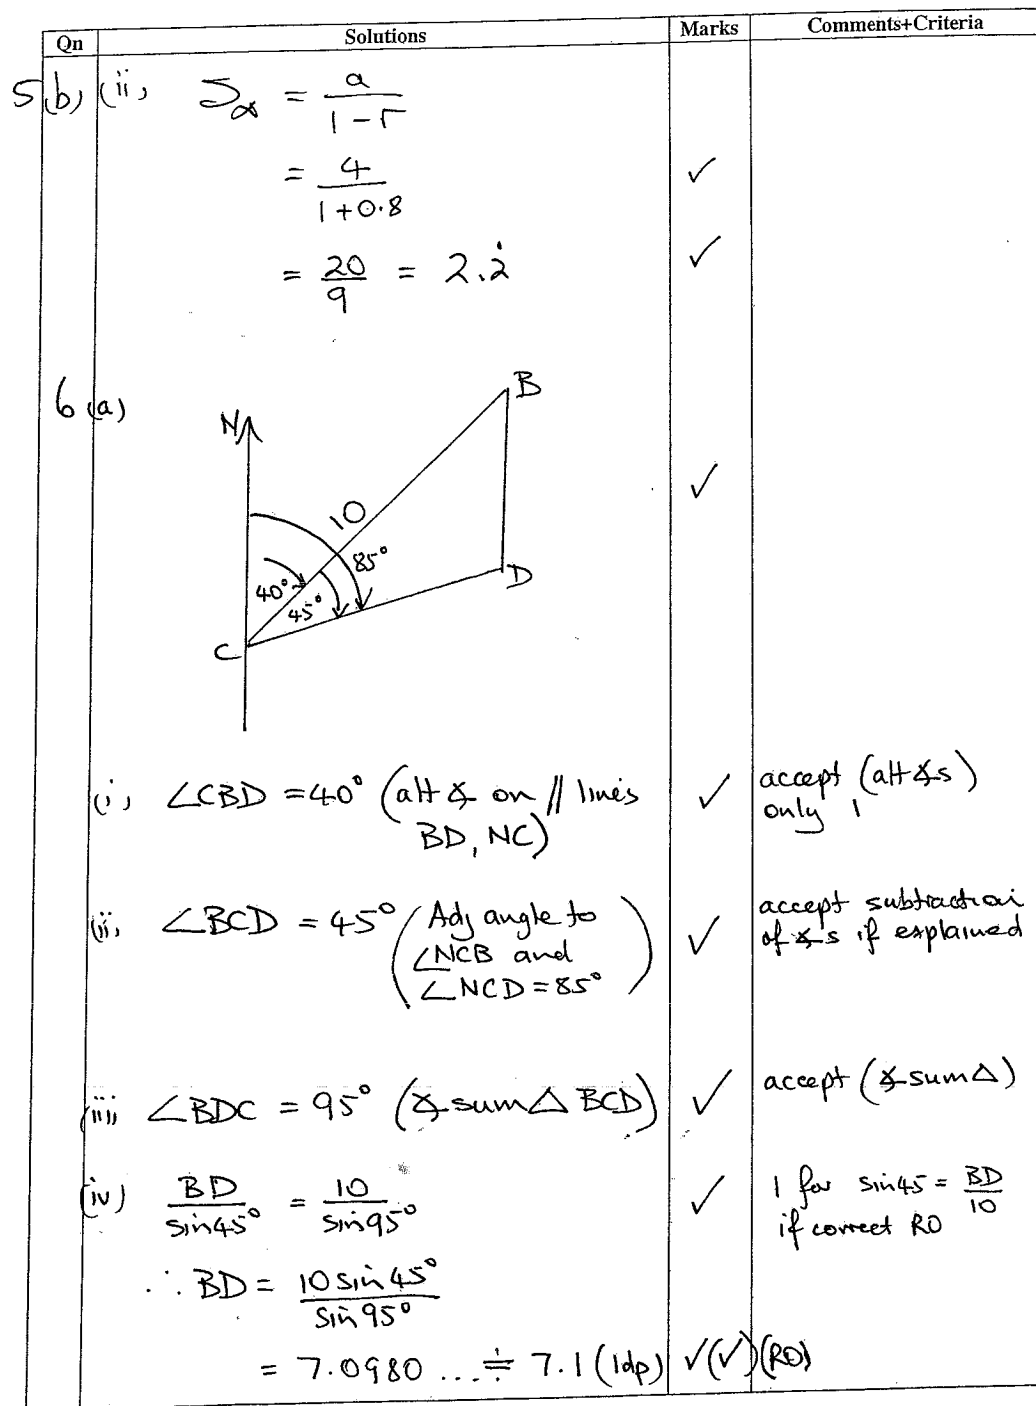 Qn Solutions Marks Comments+Criteria
5(b) (ii) S∞ = a/(1-r)
= 4/(1+0.8) ✓
= 20/9 = 2.2̇ ✓
6(a)
N
B
10
✓
85°
40°
45°
D
C
(i) ∠CBD = 40° (alt ∡ on // lines ✓ accept (alt ∡s)
BD, NC) only 1
(ii) ∠BCD = 45° (Adj angle to ✓ accept subtraction
∠NCB and of ∡s if explained
∠NCD = 85°)
(iii) ∠BDC = 95° (∡ sum △ BCD) ✓ accept (∡ sum △)
(iv) BD/sin45° = 10/sin95° ✓ 1 for sin45 = BD/10
if correct RO
∴ BD = 10 sin 45°/sin 95°
= 7.0980 ... ≑ 7.1 (1dp) ✓(✓) (RO)